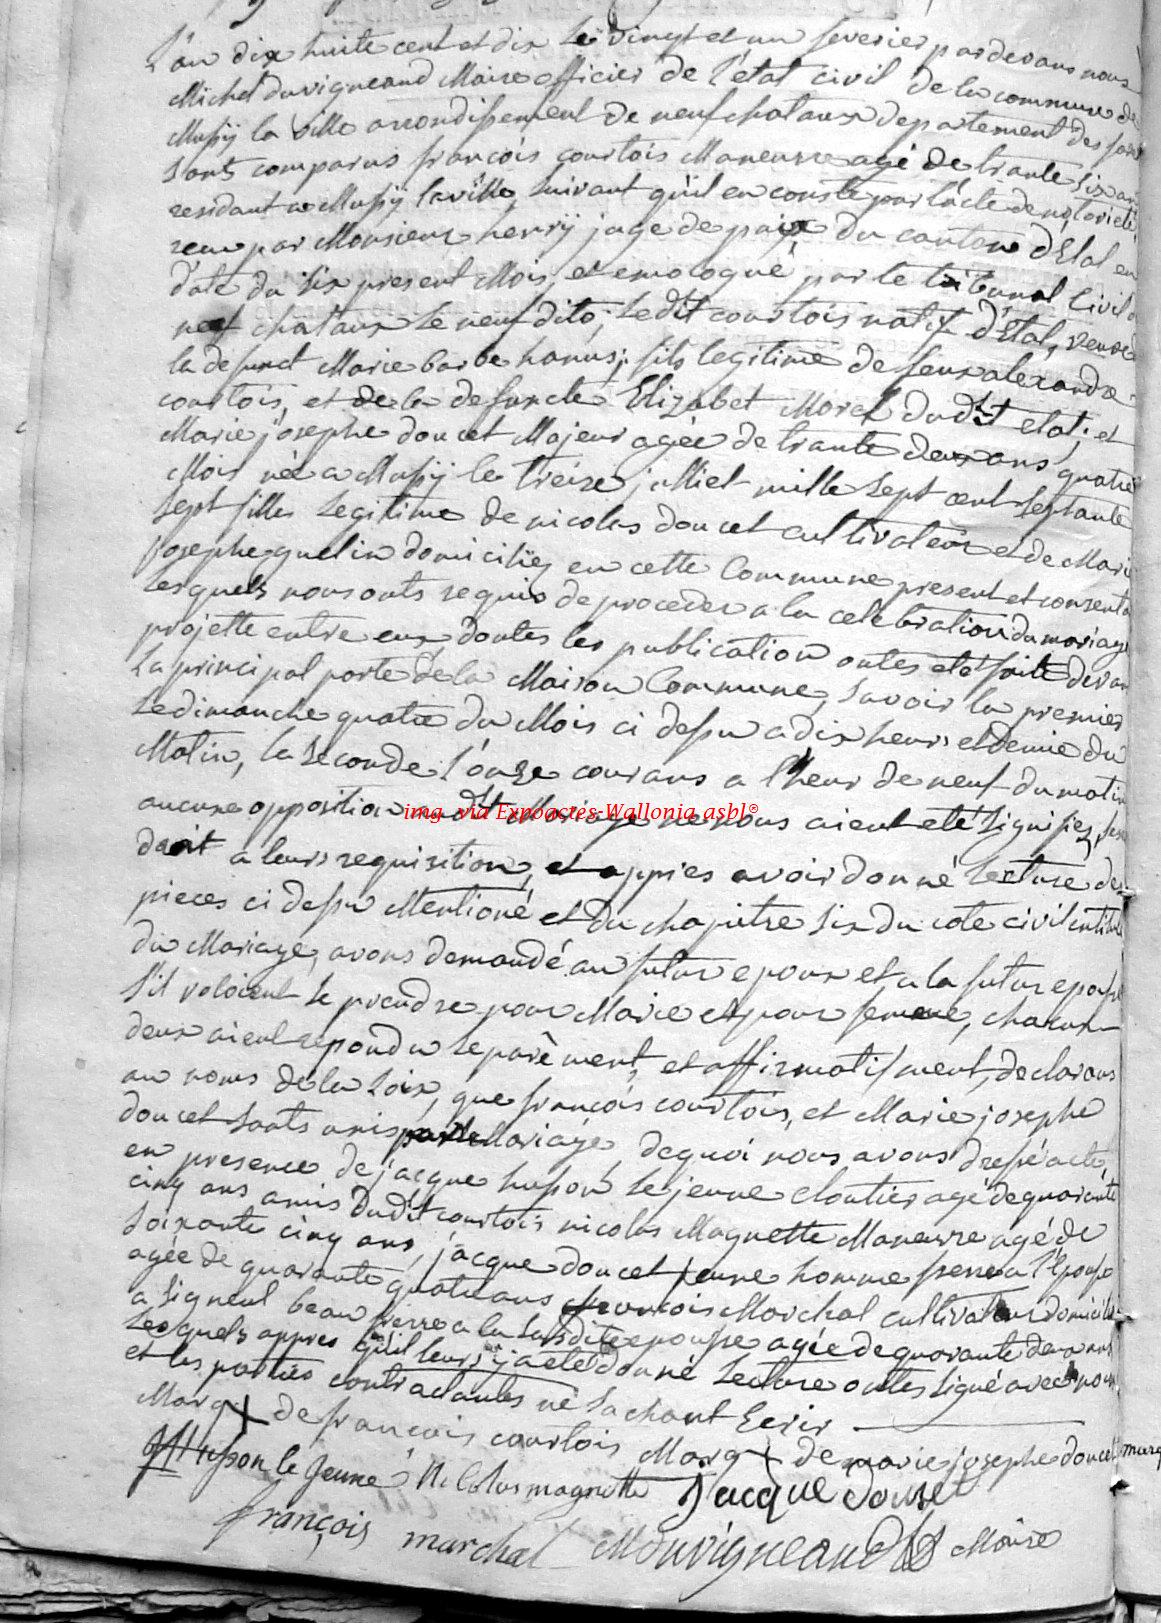 L'an dix huite cent et dix le vingt et un feverier pardevans nous
Michel Duvigneaud Maire officier de l'état civil de la commune de
Mussÿ la ville arrondissement de neufchataux departement des
sont comparus françois courtois Maneuvre agé de trante six ans
residant a Mussÿ laville, suivant qu'il en conste par l'acte de notorieté
recu par Monsieur henrÿ juge de paix du canton d'Etal en
date du six present Mois, et emologué par le tribunal Civil
neuf chataux le neuf dito; ledit courtois natif d'Etal, veuve
la defunct Marie barbe hanus; fils legitime de feux alexandre
courtois, et de la defuncte Elizabet Morel dudit etal; et
Marie josephe doucet Majeur agée de trante deux ans quatre
Mois née a Mussÿ le treize julliet mille sept cent septante
sept fille legitime de nicolas doucet cultivateur et de Marie
josephe guelin domiciliéz en cette Commune present et consenta
lesquels nous onts requis de proceder a la celebration du mariage
projette entre eux dontes les publication ontes eté faite devan
la principal porte de la Maison Commune, savoir la premier
le dimanche quatre du Mois ci dessu a dix heurs et demie du
Matin, la seconde l'onze courans a l'heur de neuf du matin
aucune opposition audit Mariage ne nous aient eté signifiez,
img. via Expoactes-Wallonia asbl®
droit a leurs requisition, et appries avoir donné lecture des
pieces ci dessu Mentioné et du chapitre six du cote civil intitulé
du Mariage, avons demandé au futur epoux et a la futur epouse
s'il voloient se prendre pour Marie et pour femme, chacun
deux aient repondu separêment et affirmatifment, declarans
au noms de la loix, que françois courtois, et Marie josephe
doucet sonts unis par le Mariage, dequoi nous avons dressé acte,
en presence de jacque husson le jeune cloutier agé de quarante
cinq ans amis dudit courtois nicolas Magnette Maneuvre agé de
soixante cinq ans, jacque doucet jeune homme frerre a l'epouse
agée de quarante quatre ans françois Marchal cultivateur domicilié
a signeul beau frerre a la susdite epouse agée de quarante deux ans
Lesquels appres qu'il leurs ÿ a eté donné lecture ontes signé avec nous
et les parties contractantes ne sachant Ecrir
Marq + de francois courtois Marq + de marie josephe doucet marq
Husson le Jeune Nicolas magnette Jacque Douset
françois marchal MDuvigneaud Maire